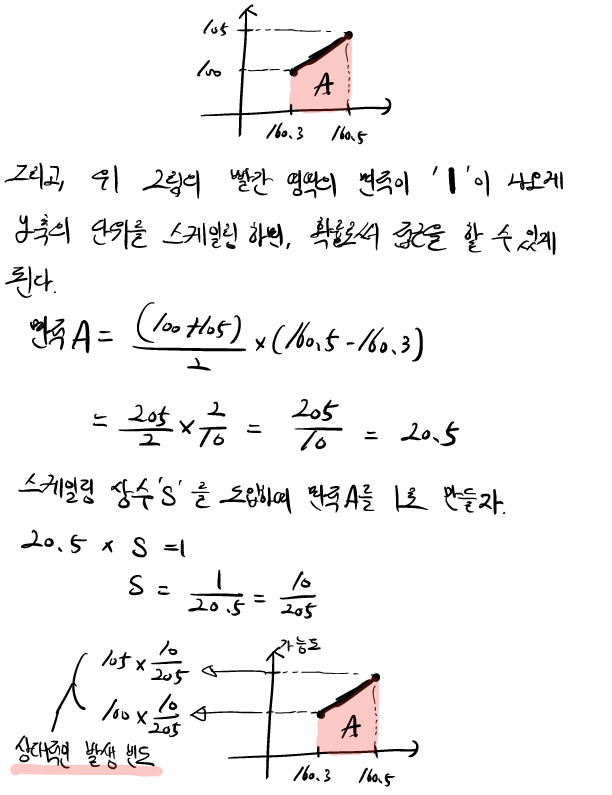 105
100
A
160.3 160.5
그리고, 위 그림의 빨간 영역의 면적이 '1'이 나오게
y축의 단위를 스케일링 하면, 확률로써 접근을 할 수 있게
된다.
면적A = (100+105)/2 × (160.5-160.3)
= 205/2 × 2/10 = 205/10 = 20.5
스케일링 상수 'S'를 도입하여 면적A를 1로 만들자.
20.5 × S = 1
S = 1/20.5 = 10/205
가능도
105 × 10/205
100 × 10/205
A
상대적인 발생 빈도
160.3 160.5